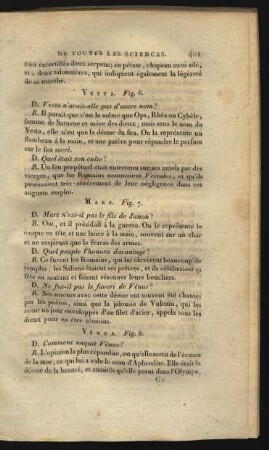 DE TOUTES LES SCIENCES. 401
sont entortillés deux serpens; un pétase, chapeau aussi ailé,
et à deux talonnières, qui indiquent également la légèreté
de sa marche.
VESTA. Fig. 6.
D. Vesta n'avait-elle pas d'autre nom?
R. Il paraît que c'est la même que Ops, Rhéa ou Cybèle,
femme de Saturne et mère des dieux; mais, sous le nom de
Vesta, elle n'est que la déesse du feu. On la représente un
flambeau à la main, et une patère pour répandre le parfum
sur le feu sacré.
D. Quel était son culte?
R. Un feu perpétuel était entretenu sur ses autels par des
vierges, que les Romains nommaient Vestales, et qu'ils
punissaient très-sévèrement de leur négligence dans cet
auguste emploi.
MARS. Fig. 7.
D. Mars n'est-il pas le fils de Junon?
R. Oui, et il présidait à la guerre. On le représente le
casque en tête et une lance à la main, souvent sur un char
et ne respirant que le fracas des armes.
D. Quel peuple l'honora davantage?
R. Ce furent les Romains, qui lui élevèrent beaucoup de
temples; les Saliens étaient ses prêtres, et ils célébraient sa
fête en sautant et faisant résonner leurs boucliers.
D. Ne fut-il pas le favori de Vénus?
R. Ses amours avec cette déesse ont souvent été chantés
par les poëtes, ainsi que la jalousie de Vulcain, qui les
ayant un jour enveloppés d'un filet d'acier, appela tous les
dieux pour en être témoins.
VÉNUS. Fig. 8.
D. Comment naquit Vénus?
R. L'opinion la plus répandue, est qu'elle sortit de l'écume
de la mer; ce qui lui a valu le nom d'Aphrodite. Elle était la
déesse de la beauté, et aussitôt qu'elle parut dans l'Olympe,